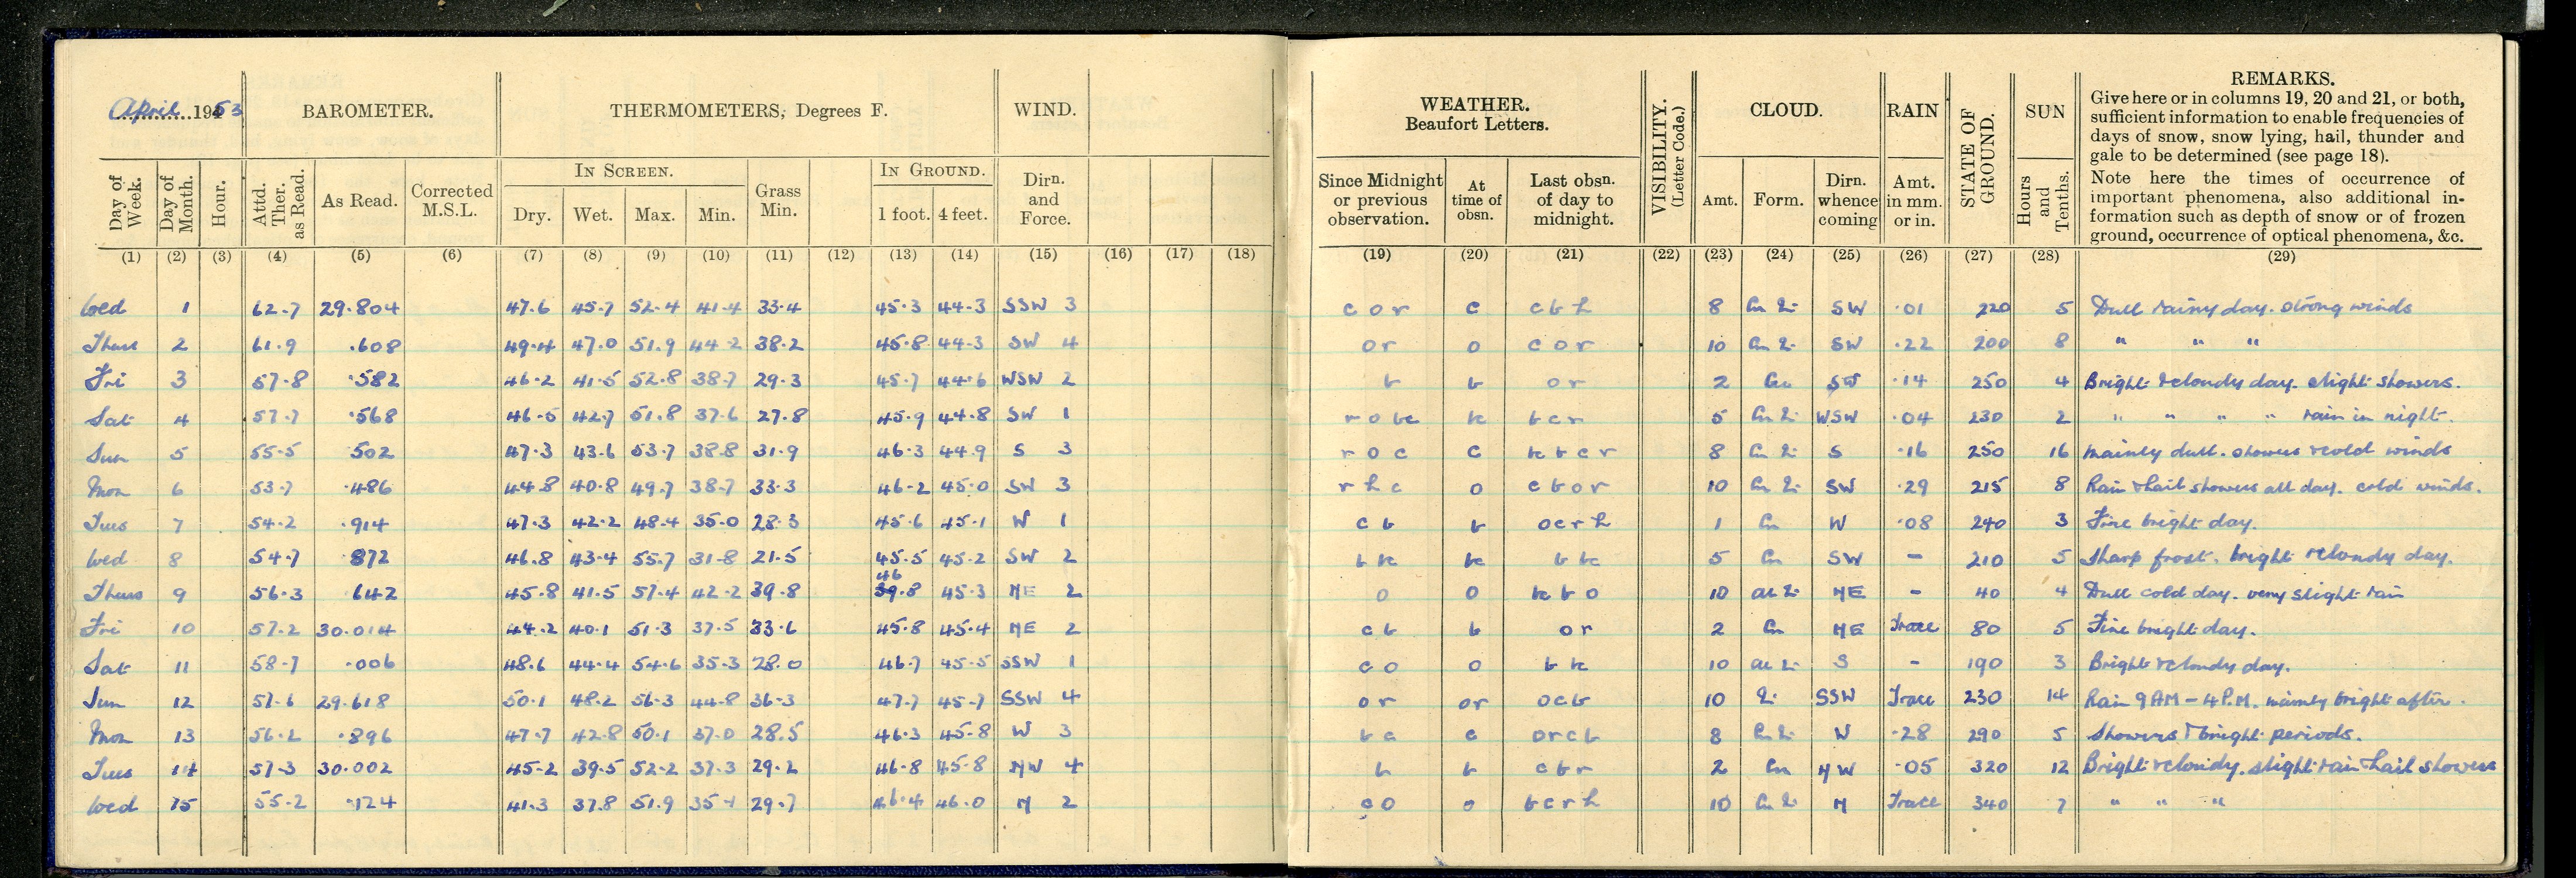 April 1953 BAROMETER. THERMOMETERS, Degrees F. WIND. WEATHER. Beaufort Letters. VISIBILITY. (Letter Code.) CLOUD. RAIN STATE OF GROUND. SUN REMARKS.
Give here or in columns 19, 20 and 21, or both,
sufficient information to enable frequencies of
days of snow, snow lying, hail, thunder and
gale to be determined (see page 18).
Note here the times of occurrence of
important phenomena, also additional in-
formation such as depth of snow or of frozen
ground, occurrence of optical phenomena, &c.
Day of Week. Day of Month. Hour. Attd. Ther. as Read. As Read. Corrected M.S.L. IN SCREEN. Dry. Wet. Max. Min. Grass Min. IN GROUND. 1 foot. 4 feet. Dirn. and Force. Since Midnight or previous observation. At time of obsn. Last obsn. of day to midnight. Amt. Form. Dirn. whence coming Amt. in mm. or in. Hours and Tenths.
(1) (2) (3) (4) (5) (6) (7) (8) (9) (10) (11) (12) (13) (14) (15) (16) (17) (18) (19) (20) (21) (22) (23) (24) (25) (26) (27) (28) (29)
Wed 1 62.7 29.804 47.6 45.7 52.4 41.4 33.4 45.3 44.3 SSW 3 c o r c c b h 8 SW .01 220 5 Dull rainy day. strong winds
Thurs 2 61.9 .608 49.4 47.0 51.9 44.2 38.2 45.8 44.3 SW 4 o r o c o r 10 SW .22 200 8 " " "
Fri 3 57.8 .582 46.2 41.5 52.8 38.7 29.3 45.7 44.6 WSW 2 b b o r 2 Cu SW .14 250 4 Bright & cloudy day. slight showers.
Sat 4 57.7 .568 46.5 42.7 51.8 37.6 27.8 45.9 44.8 SW 1 r o bc bc b c r 5 WSW .04 230 2 " " " " rain in night.
Sun 5 55.5 .502 47.3 43.6 53.7 38.8 31.9 46.3 44.9 S 3 r o c c bc b c r 8 S .16 250 16 mainly dull. showers & cold winds
Mon 6 53.7 .486 44.8 40.8 49.7 38.7 33.3 46.2 45.0 SW 3 r h c o c b o r 10 SW .29 215 8 Rain & hail showers all day. cold winds.
Tues 7 54.2 .914 47.3 42.2 48.4 35.0 28.3 45.6 45.1 W 1 c b b o c r h 1 Cu W .08 240 3 Fine bright day.
Wed 8 54.7 .872 46.8 43.4 55.7 31.8 21.5 45.5 45.2 SW 2 b bc bc b bc 5 Cu SW - 210 5 Sharp frost. bright & cloudy day.
Thurs 9 56.3 .642 45.8 41.5 57.4 42.2 39.8 46.8 45.3 NE 2 o o bc b o 10 NE - 40 4 Dull cold day. very slight rain
Fri 10 57.2 30.014 44.2 40.1 51.3 37.5 33.6 45.8 45.4 NE 2 c b b o r 2 Cu NE Trace 80 5 Fine bright day.
Sat 11 58.7 .006 48.6 44.4 54.6 35.3 28.0 46.7 45.5 SSW 1 c o o b bc 10 S - 190 3 Bright & cloudy day.
Sun 12 57.6 29.618 50.1 48.2 56.3 44.8 36.3 47.7 45.7 SSW 4 o r o r o c b 10 SSW Trace 230 14 Rain 9 AM - 4 P.M. mainly bright after.
Mon 13 56.2 .896 47.7 42.8 50.1 37.0 28.5 46.3 45.8 W 3 b c c o r c b 8 W .28 290 5 Showers & bright periods.
Tues 14 57.3 30.002 45.2 39.5 52.2 37.3 29.2 46.8 45.8 NW 4 b b c b r 2 Cu NW .05 320 12 Bright & cloudy. slight rain & hail showers
Wed 15 55.2 .124 41.3 37.8 51.9 35.1 29.7 46.4 46.0 N 2 c o o b c r h 10 N Trace 340 7 " " "